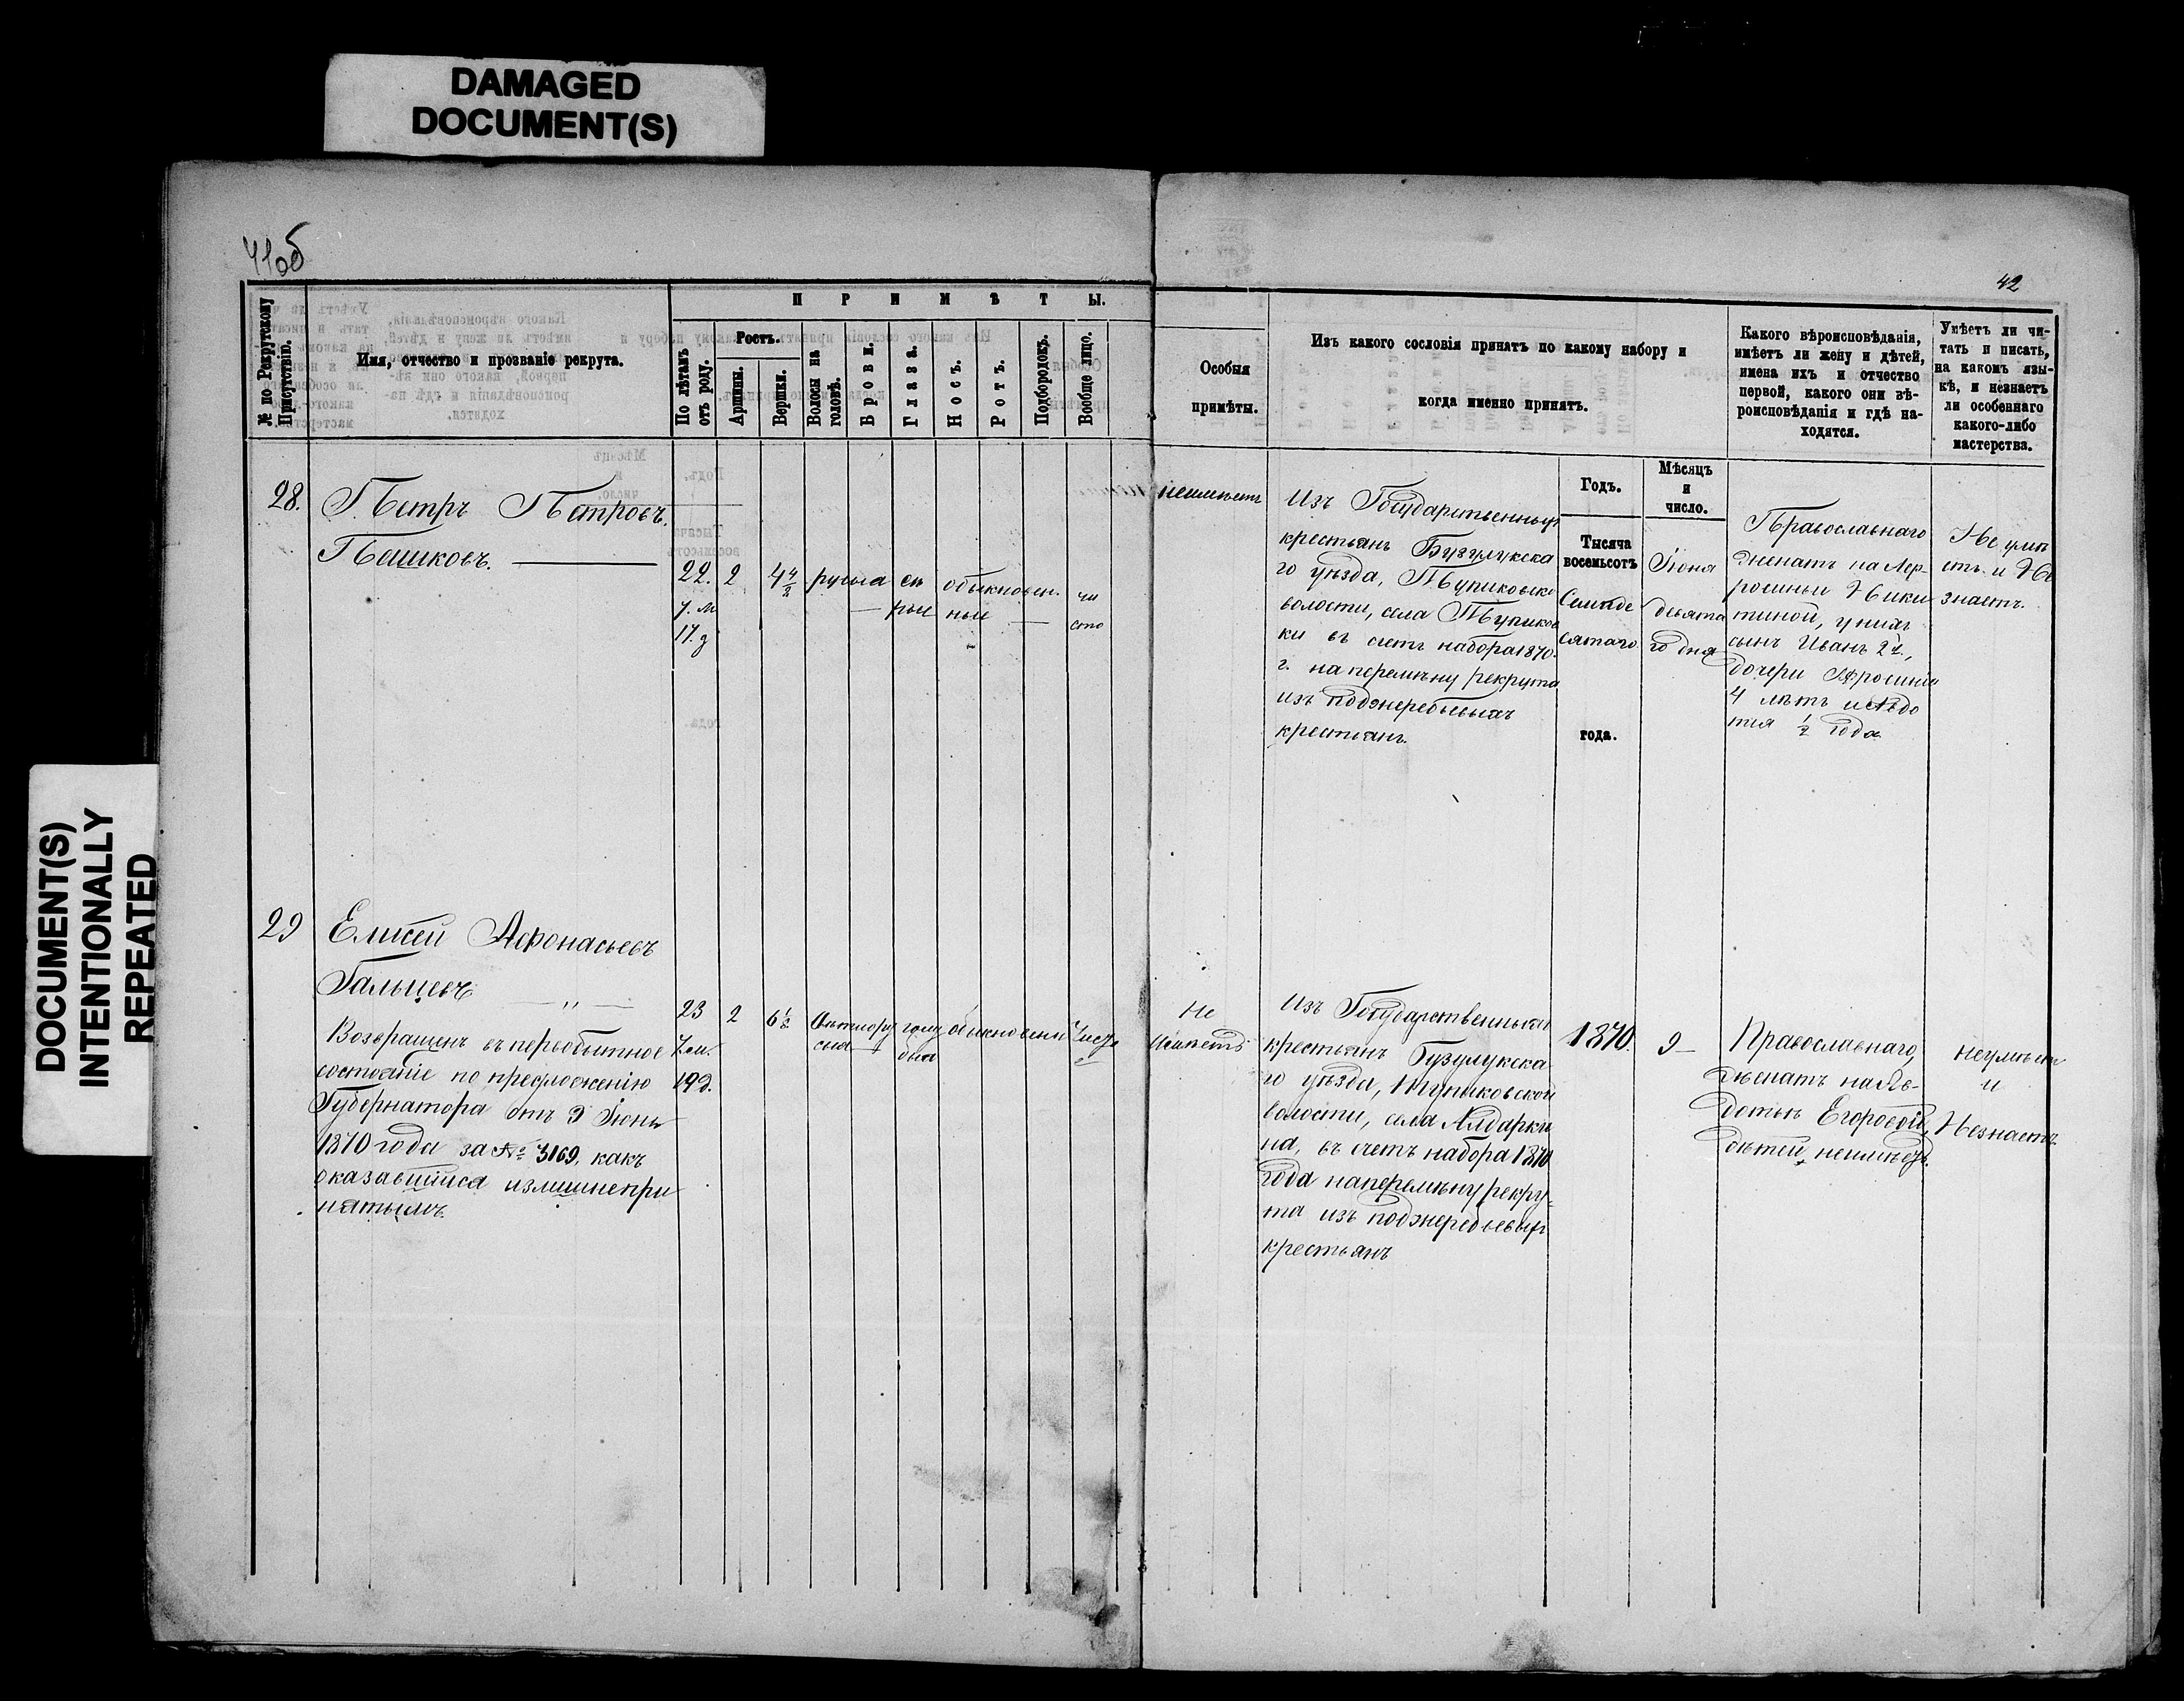 DAMAGED
DOCUMENT(S)
DOCUMENT(S)
INTENTIONALLY
REPEATED
41об
42
№ по Рекрутскому
Присутствію.
Имя, отчество и прозваніе рекрута.
П Р И М Ѣ Т Ы.
По лѣтамъ
отъ роду.
Ростъ.
Аршины.
Вершки.
Волосы на
головѣ.
Брови.
Глаза.
Носъ.
Ротъ.
Подбородокъ.
Вообще лицо.
Особыя
примѣты.
Изъ какого сословія принятъ по какому набору и
когда именно принятъ.
Какого вѣроисповѣданія,
имѣетъ ли жену и дѣтей,
имена ихъ и отчество
первой, какого они вѣ-
роисповѣданія и гдѣ на-
ходятся.
Умѣетъ ли чи-
тать и писать,
на какомъ язы-
кѣ, и незнаетъ
ли особеннаго
какого-либо
мастерства.
28.
Петръ Петровъ
Пешковъ.
22.
7. м
17. д
2
4 4/2
русыа
сѣ
рые
обыкновен.
ные
чи
сто
неимѣетъ
Изъ Государственныхъ
крестьянъ Бузулукска
го уѣзда, Тупиковск
волости, села Тупиков
ки въ счетъ набора 1870.
г. на перемѣну рекрута
изъ поджеребьевыхъ
крестьянъ.
Годъ.
Тысяча
восемьсотъ
Семиде
сятаго
года.
Мѣсяцъ
и
число.
Іюня
девята
го дня
Православнаго
женатъ на Яер-
росиньи Ники
тиной, у нихъ
сынъ Иванъ 2 г.,
дочери Афросинья
4 лѣтъ и Авдо
тия 1/2 года
Не умѣ
етъ и Не
знаетъ.
29
Елисей Афонасьевъ
Гальцевъ
Возвращенъ въ первобытное
состояніе по предложенію
Губернатора отъ 9 Іюня
1870 года за № 3169, какъ
оказавшийся излишне при
нятымъ.
23
7 м.
19 д.
2
6 1/2
Свѣтлору
сыа
голу
быа
обыкновенн
Чисто
Не
имѣетъ
Изъ Государственныхъ
крестьянъ Бузулукска
го уѣзда, Тупиковской
волости, села Алдарки
на, въ счетъ набора 1870
года на перемѣну рекру-
та изъ поджеребьевыхъ
крестьянъ
1870.
9
Православнаго,
женатъ на Ав-
дотьи Егоровой,
дѣтей неимѣетъ.
неумѣетъ
и
Незнаетъ